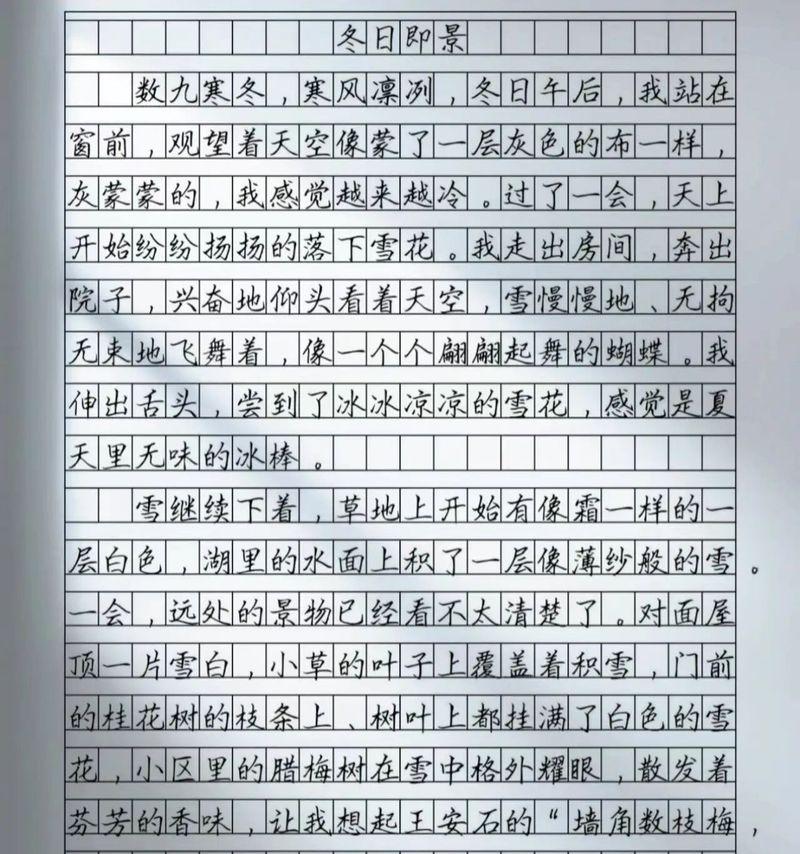 冬日即景
数九寒冬，寒风凛冽，冬日午后，我站在
窗前，观望着天空像蒙了一层灰色的布一样，
灰蒙蒙的，我感觉越来越冷。过了一会，天上
开始纷纷扬扬的落下雪花。我走出房间，奔出
院子，兴奋地仰头看着天空，雪慢慢地、无拘
无束地飞舞着，像一个个翩翩起舞的蝴蝶。我
伸出舌头，尝到了冰冰凉凉的雪花，感觉是夏
天里无味的冰棒。
雪继续下着，草地上开始有像霜一样的一
层白色，湖里的水面上积了一层像薄纱般的雪。
一会，远处的景物已经看不太清楚了。对面屋
顶一片雪白，小草的叶子上覆盖着积雪，门前
的桂花树的枝条上、树叶上都挂满了白色的雪
花，小区里的腊梅树在雪中格外耀眼，散发着
芬芳的香味，让我想起王安石的“墙角数枝梅，